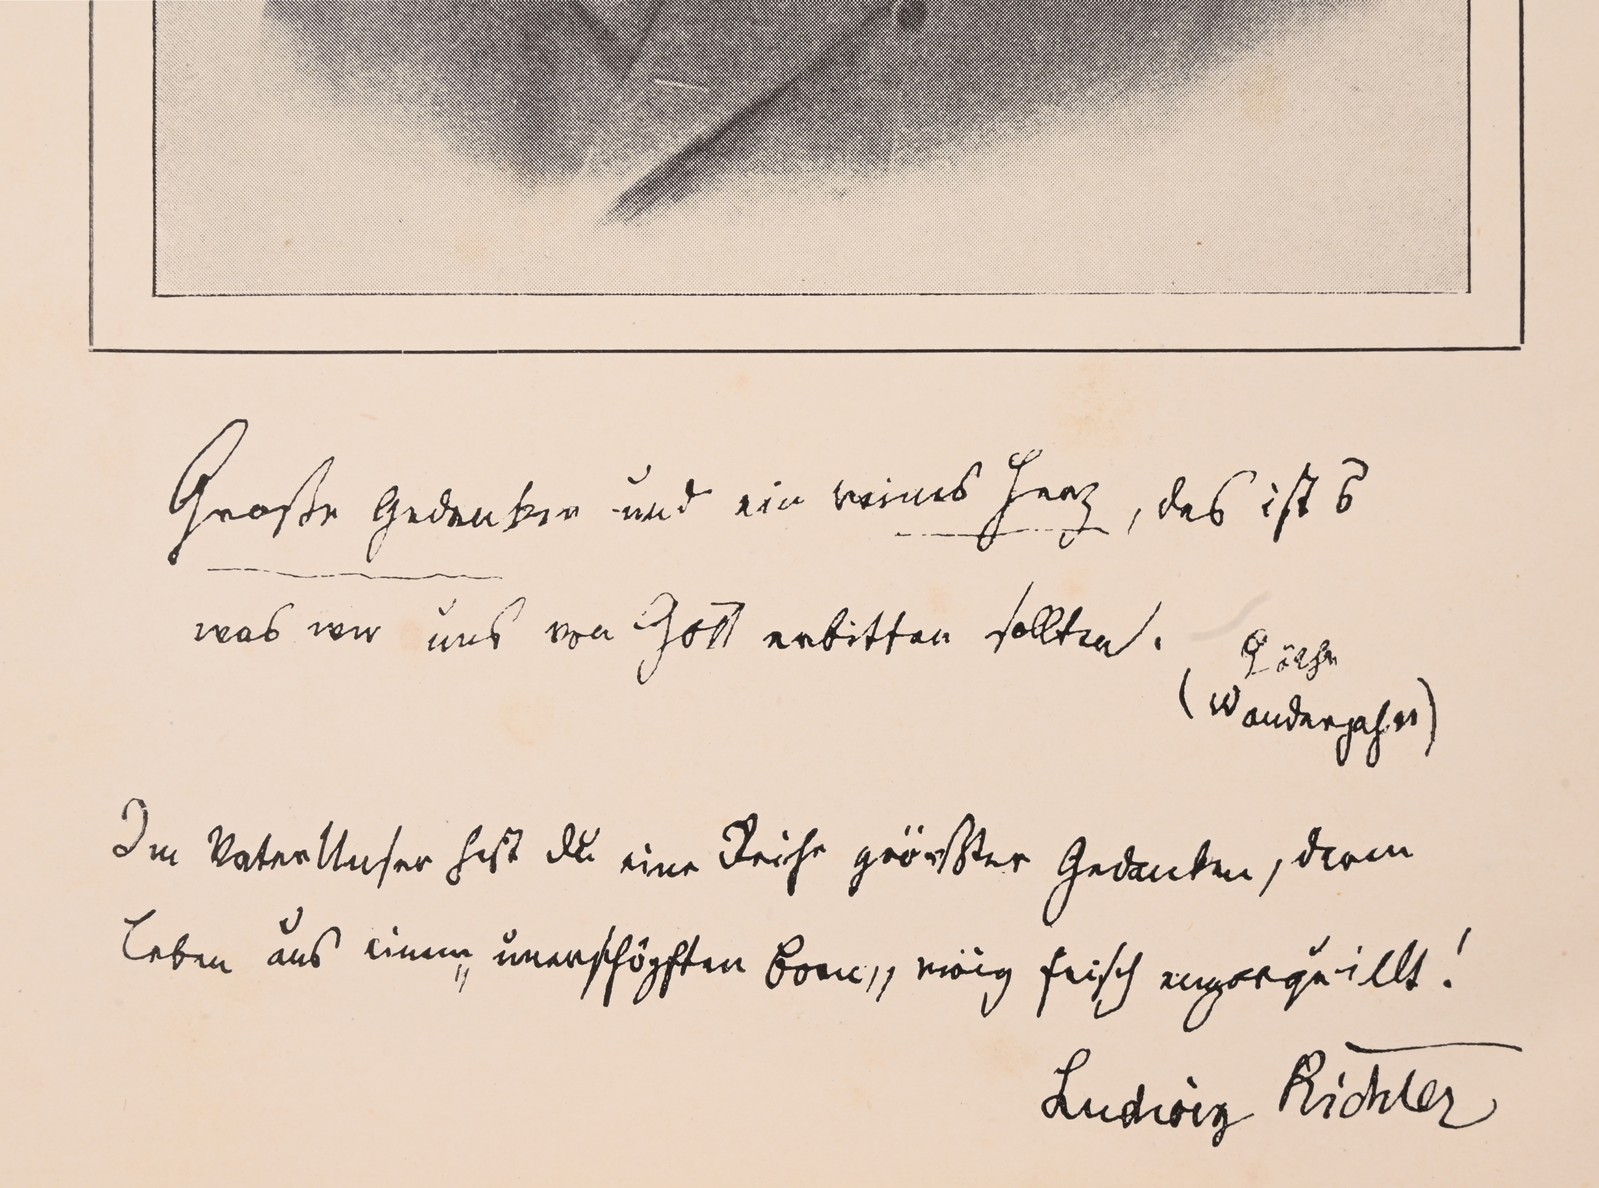 Große Gedanken und ein reines Herz, das ist's
was wir uns von Gott erbitten sollten.
Göthe
(Wanderjahre)
Im VaterUnser hast du eine Reihe größter Gedanken, deren
Leben aus einem „unerschöpften Born„ ewig frisch emporquillt!
Ludwig Richter